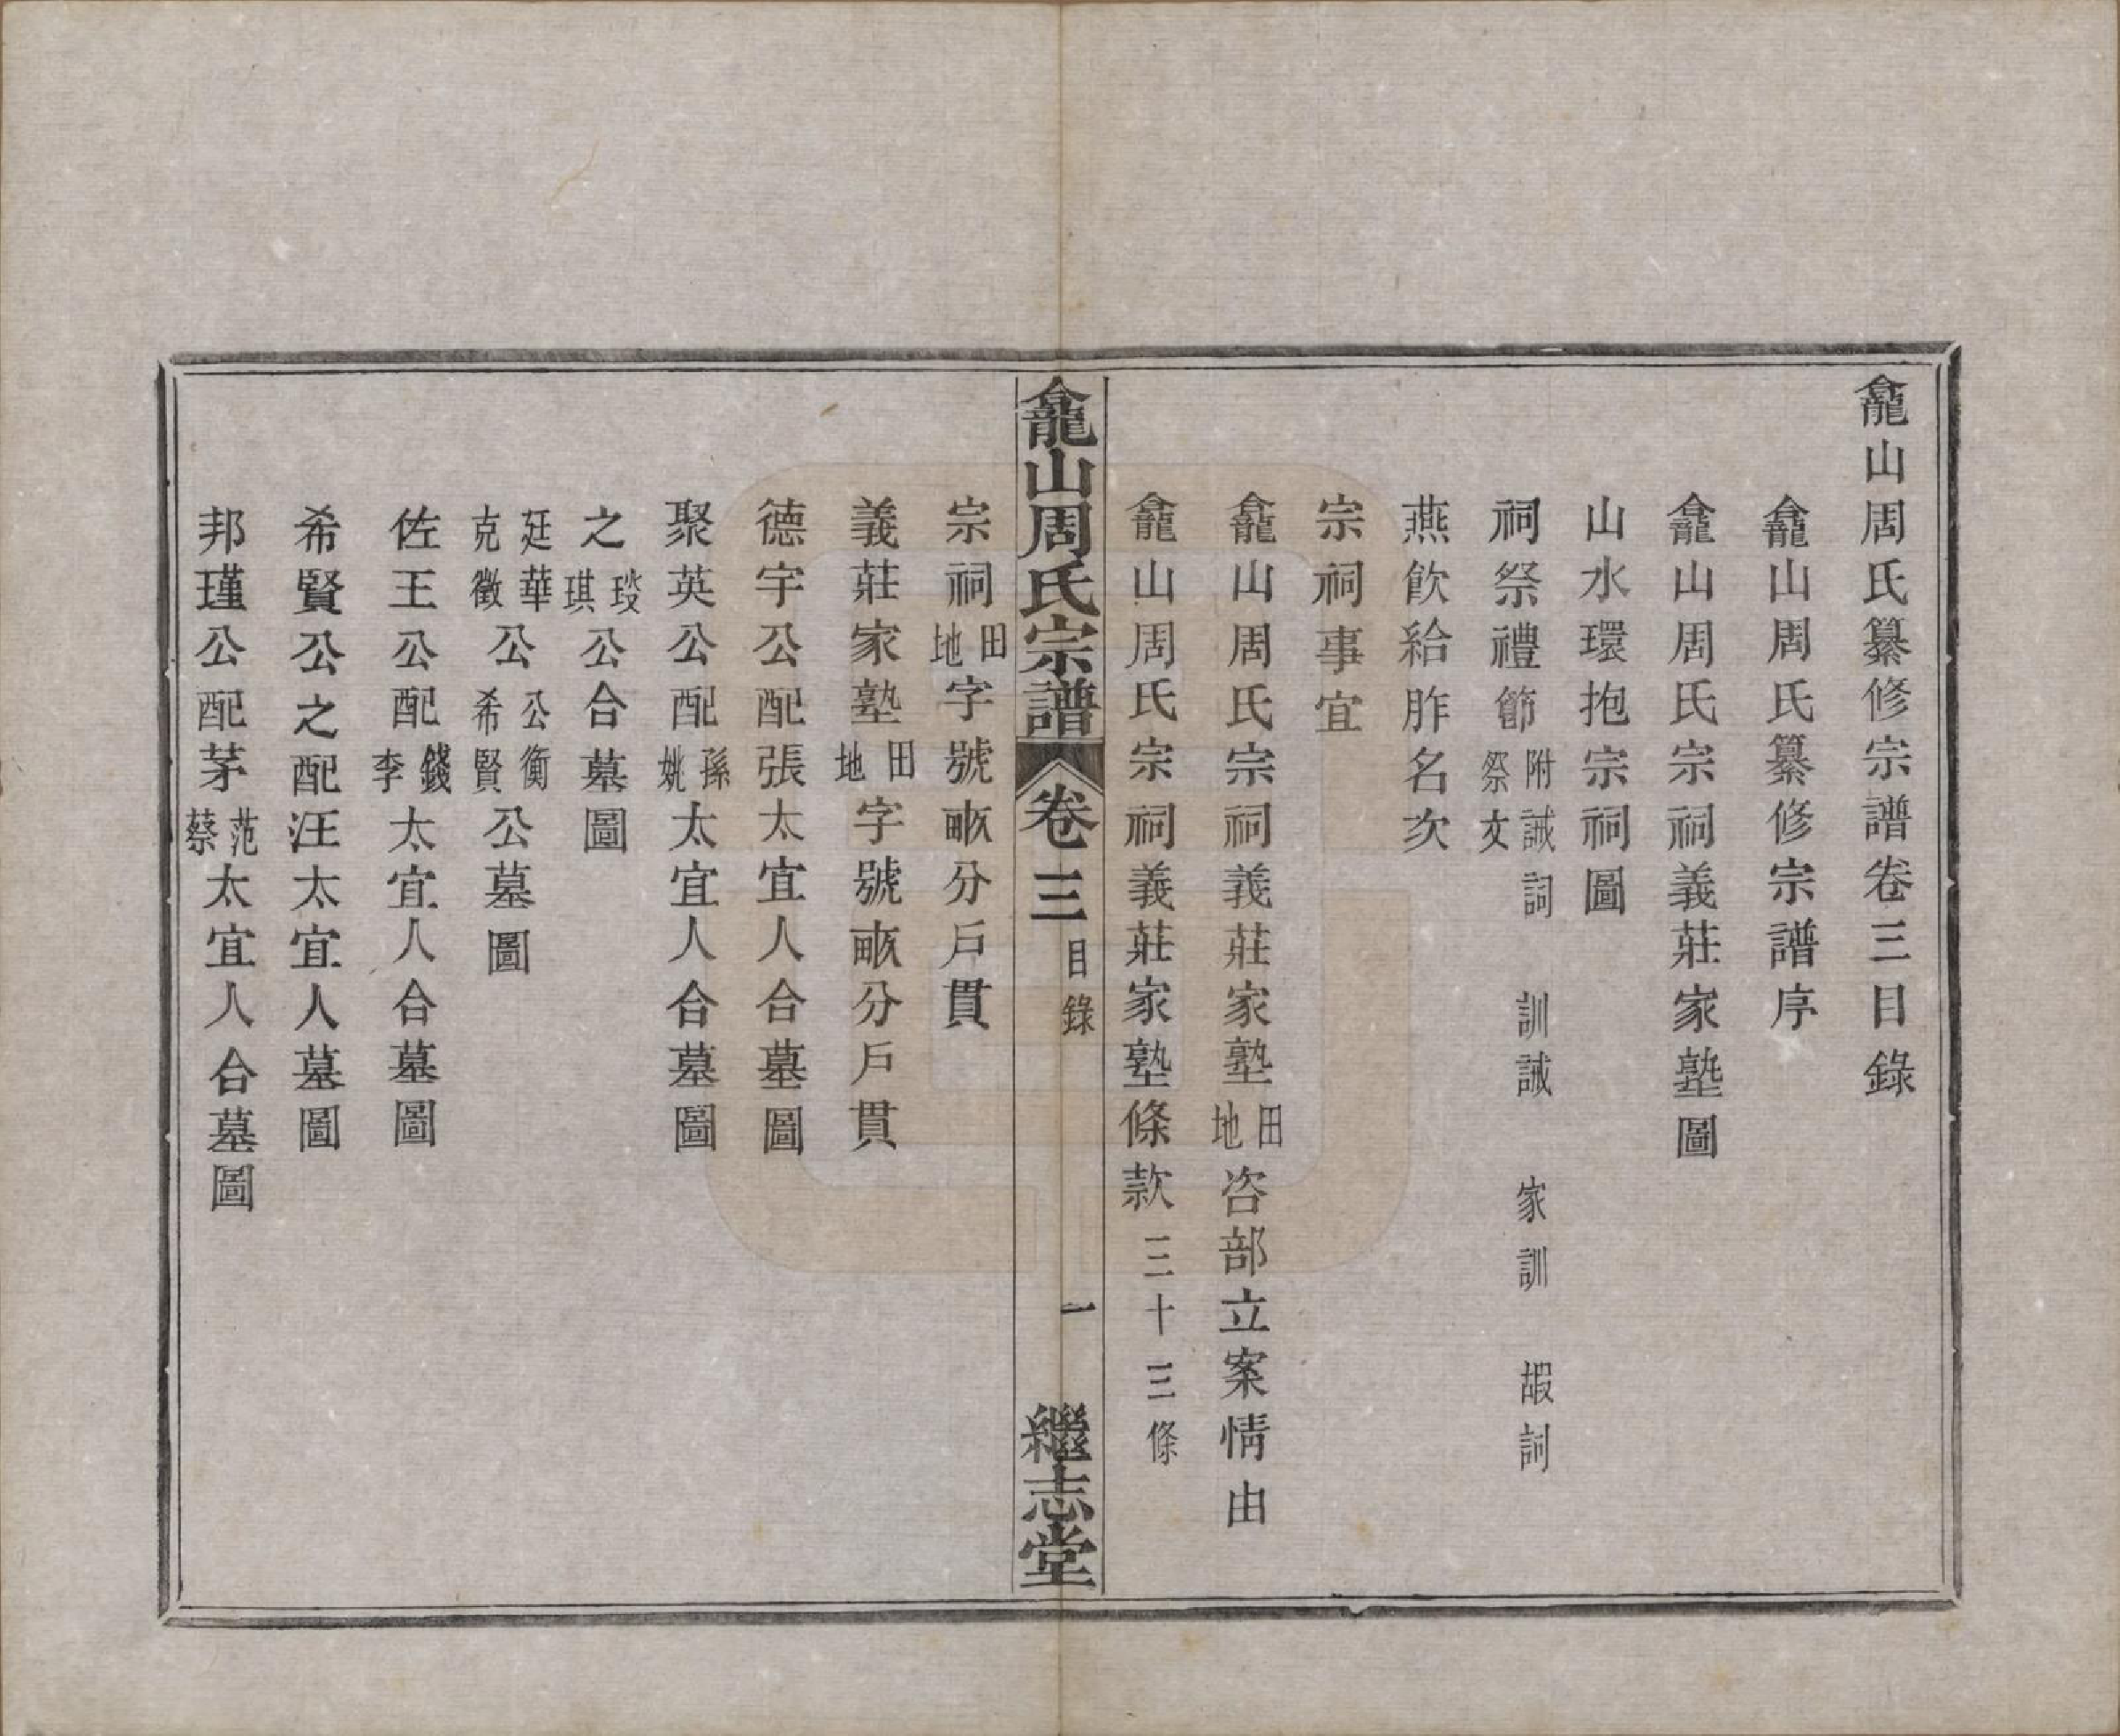 龕山周氏纂修宗譜卷三目錄
龕山周氏纂修宗譜序
龕山周氏宗祠義莊家塾圖
山水環抱宗祠圖
祠祭禮節附誡詞 訓誡 家訓 嘏詞 祭文
燕飲給胙名次
宗祠事宜
龕山周氏宗祠義莊家塾田地咨部立案情由
龕山周氏宗祠義莊家塾條款三十三條
龕山周氏宗譜 卷三 目錄 一 繼志堂
宗祠田地字號畝分戶貫
義莊家塾田地字號畝分戶貫
德宇公配張太宜人合墓圖
聚英公配孫姚太宜人合墓圖
之琰琪公合墓圖
廷華克徵公公衡希賢公墓圖
佐王公配錢李太宜人合墓圖
希賢公之配汪太宜人墓圖
邦瑾公配茅范蔡太宜人合墓圖